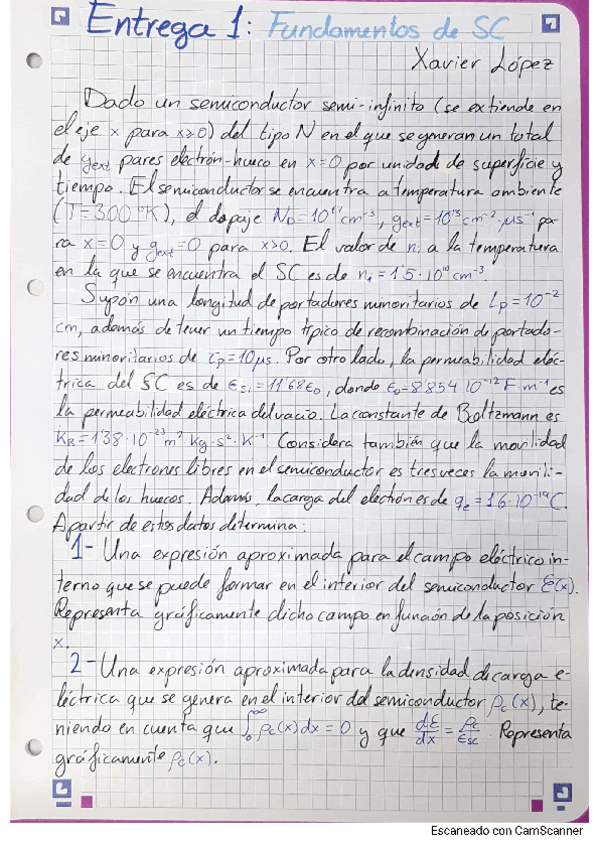 Entrega 1: Fundamentos de SC
Xavier López
Dado un semiconductor semi-infinito (se extiende en
el eje x para x≥0) del tipo N en el que se generan un total
de gext pares electrón-hueco en x=0 por unidad de superficie y
tiempo. El semiconductor se encuentra a temperatura ambiente
(T=300°K), el dopaje N_D=10¹⁷cm⁻³, gext=10¹³cm⁻²·μs⁻¹ pa-
ra x=0 y gext=0 para x>0. El valor de ni a la temperatura
en la que se encuentra el SC es de ni=1'5·10¹⁰cm⁻³.
Supón una longitud de portadores minoritarios de Lp=10⁻²
cm, además de tener un tiempo típico de recombinación de portado-
res minoritarios de τp=10μs. Por otro lado, la permeabilidad eléc-
trica del SC es de ϵSi=11'68ϵ₀, donde ϵ₀=8'854·10⁻¹²F·m⁻¹ es
la permeabilidad eléctrica del vacío. La constante de Boltzmann es
K_B=1'38·10⁻²³m²·kg·s²·K⁻¹. Considera también que la movilidad
de los electrones libres en el semiconductor es tres veces la movili-
dad de los huecos. Además, la carga del electrón es de qe=1'6·10⁻¹⁹C.
A partir de estos datos determina:
1- Una expresión aproximada para el campo eléctrico in-
terno que se puede formar en el interior del semiconductor Ɛ(x).
Representa gráficamente dicho campo en función de la posición
x.
2- Una expresión aproximada para la densidad de carga e-
léctrica que se genera en el interior del semiconductor ρc(x), te-
niendo en cuenta que ∫₀^∞ ρc(x)dx = 0 y que dƐ/dx = ρc/ϵsc. Representa
gráficamente ρc(x).
Escaneado con CamScanner